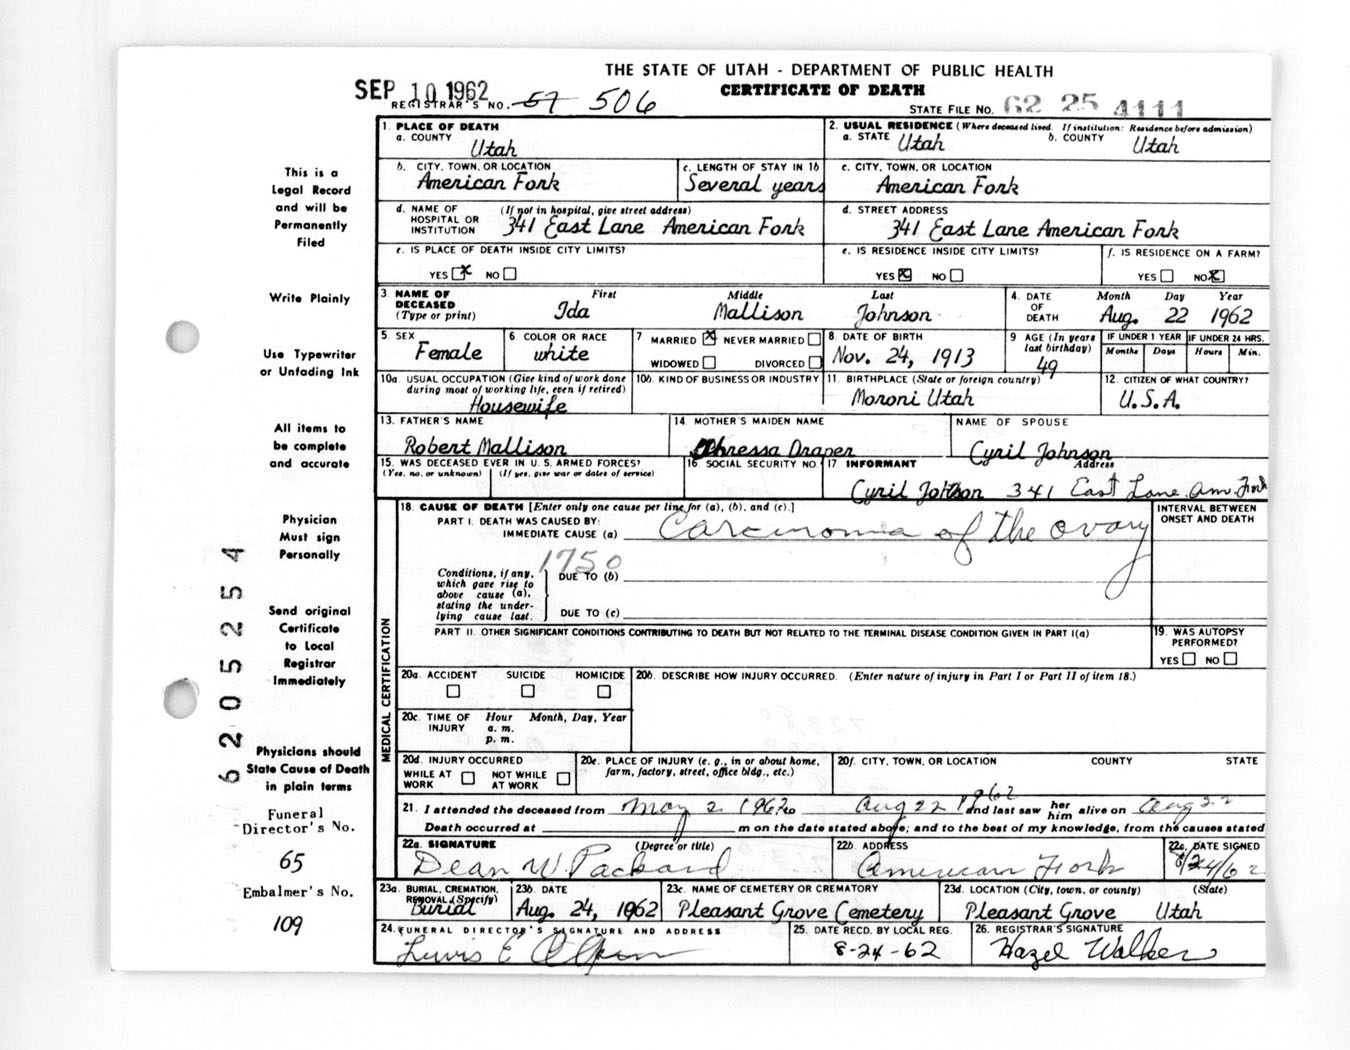 THE STATE OF UTAH - DEPARTMENT OF PUBLIC HEALTH
SEP 10 1962
CERTIFICATE OF DEATH
REGISTRAR'S NO. 57 506
STATE FILE NO. 62 25 4111
This is a
Legal Record
and will be
Permanently
Filed
Write Plainly
Use Typewriter
or Unfading Ink
All items to
be complete
and accurate
Physician
Must sign
Personally
Send original
Certificate
to Local
Registrar
Immediately
Physicians should
State Cause of Death
in plain terms
Funeral
Director's No.
65
Embalmer's No.
109
6205254
1. PLACE OF DEATH
a. COUNTY
Utah
2. USUAL RESIDENCE (Where deceased lived. If institution: Residence before admission)
a. STATE Utah b. COUNTY Utah
b. CITY, TOWN, OR LOCATION
American Fork
c. LENGTH OF STAY IN 1b
Several years
c. CITY, TOWN, OR LOCATION
American Fork
d. NAME OF HOSPITAL OR INSTITUTION (If not in hospital, give street address)
341 East Lane American Fork
d. STREET ADDRESS
341 East Lane American Fork
e. IS PLACE OF DEATH INSIDE CITY LIMITS?
YES x NO
e. IS RESIDENCE INSIDE CITY LIMITS?
YES x NO
f. IS RESIDENCE ON A FARM?
YES NO x
3. NAME OF DECEASED (Type or print)
First Middle Last
Ida Mallison Johnson
4. DATE OF DEATH
Month Day Year
Aug. 22 1962
5. SEX
Female
6 COLOR OR RACE
white
7 MARRIED x NEVER MARRIED
WIDOWED DIVORCED
8. DATE OF BIRTH
Nov. 24, 1913
9 AGE (In years last birthday)
49
IF UNDER 1 YEAR
Months Days
IF UNDER 24 HRS.
Hours Min.
10a. USUAL OCCUPATION (Give kind of work done during most of working life, even if retired)
Housewife
10b. KIND OF BUSINESS OR INDUSTRY
11. BIRTHPLACE (State or foreign country)
Moroni Utah
12. CITIZEN OF WHAT COUNTRY?
U.S.A.
13. FATHER'S NAME
Robert Mallison
14 MOTHER'S MAIDEN NAME
Draper
NAME OF SPOUSE
Cyril Johnson
15. WAS DECEASED EVER IN U. S. ARMED FORCES?
(Yes, no, or unknown) (If yes, give war or dates of service)
16 SOCIAL SECURITY NO.
17. INFORMANT Address
Cyril Johnson 341 East Lane Am. Fork
MEDICAL CERTIFICATION
18. CAUSE OF DEATH [Enter only one cause per line for (a), (b), and (c).]
PART I. DEATH WAS CAUSED BY:
IMMEDIATE CAUSE (a) Carcinoma of the ovary
INTERVAL BETWEEN ONSET AND DEATH
1750
Conditions, if any, which gave rise to above cause (a), stating the underlying cause last.
DUE TO (b)
DUE TO (c)
PART II. OTHER SIGNIFICANT CONDITIONS CONTRIBUTING TO DEATH BUT NOT RELATED TO THE TERMINAL DISEASE CONDITION GIVEN IN PART I(a)
19. WAS AUTOPSY PERFORMED?
YES NO
20a. ACCIDENT SUICIDE HOMICIDE
20b. DESCRIBE HOW INJURY OCCURRED. (Enter nature of injury in Part I or Part II of item 18.)
20c. TIME OF INJURY Hour Month, Day, Year
a. m.
p. m.
20d. INJURY OCCURRED
WHILE AT WORK NOT WHILE AT WORK
20e. PLACE OF INJURY (e. g., in or about home, farm, factory, street, office bldg., etc.)
20f. CITY, TOWN, OR LOCATION COUNTY STATE
21. I attended the deceased from May 2 1962 to Aug 22 1962 and last saw her him alive on Aug 22
Death occurred at m on the date stated above; and to the best of my knowledge, from the causes stated
22a. SIGNATURE (Degree or title)
Dean W. Packard
22b. ADDRESS
American Fork
22c. DATE SIGNED
8/24/62
23a. BURIAL, CREMATION, REMOVAL (Specify)
Burial
23b. DATE
Aug. 24, 1962
23c. NAME OF CEMETERY OR CREMATORY
Pleasant Grove Cemetery
23d. LOCATION (City, town, or county) (State)
Pleasant Grove Utah
24. FUNERAL DIRECTOR'S SIGNATURE AND ADDRESS
Lewis E Olpin
25. DATE RECD. BY LOCAL REG.
8-24-62
26. REGISTRAR'S SIGNATURE
Hazel Walker